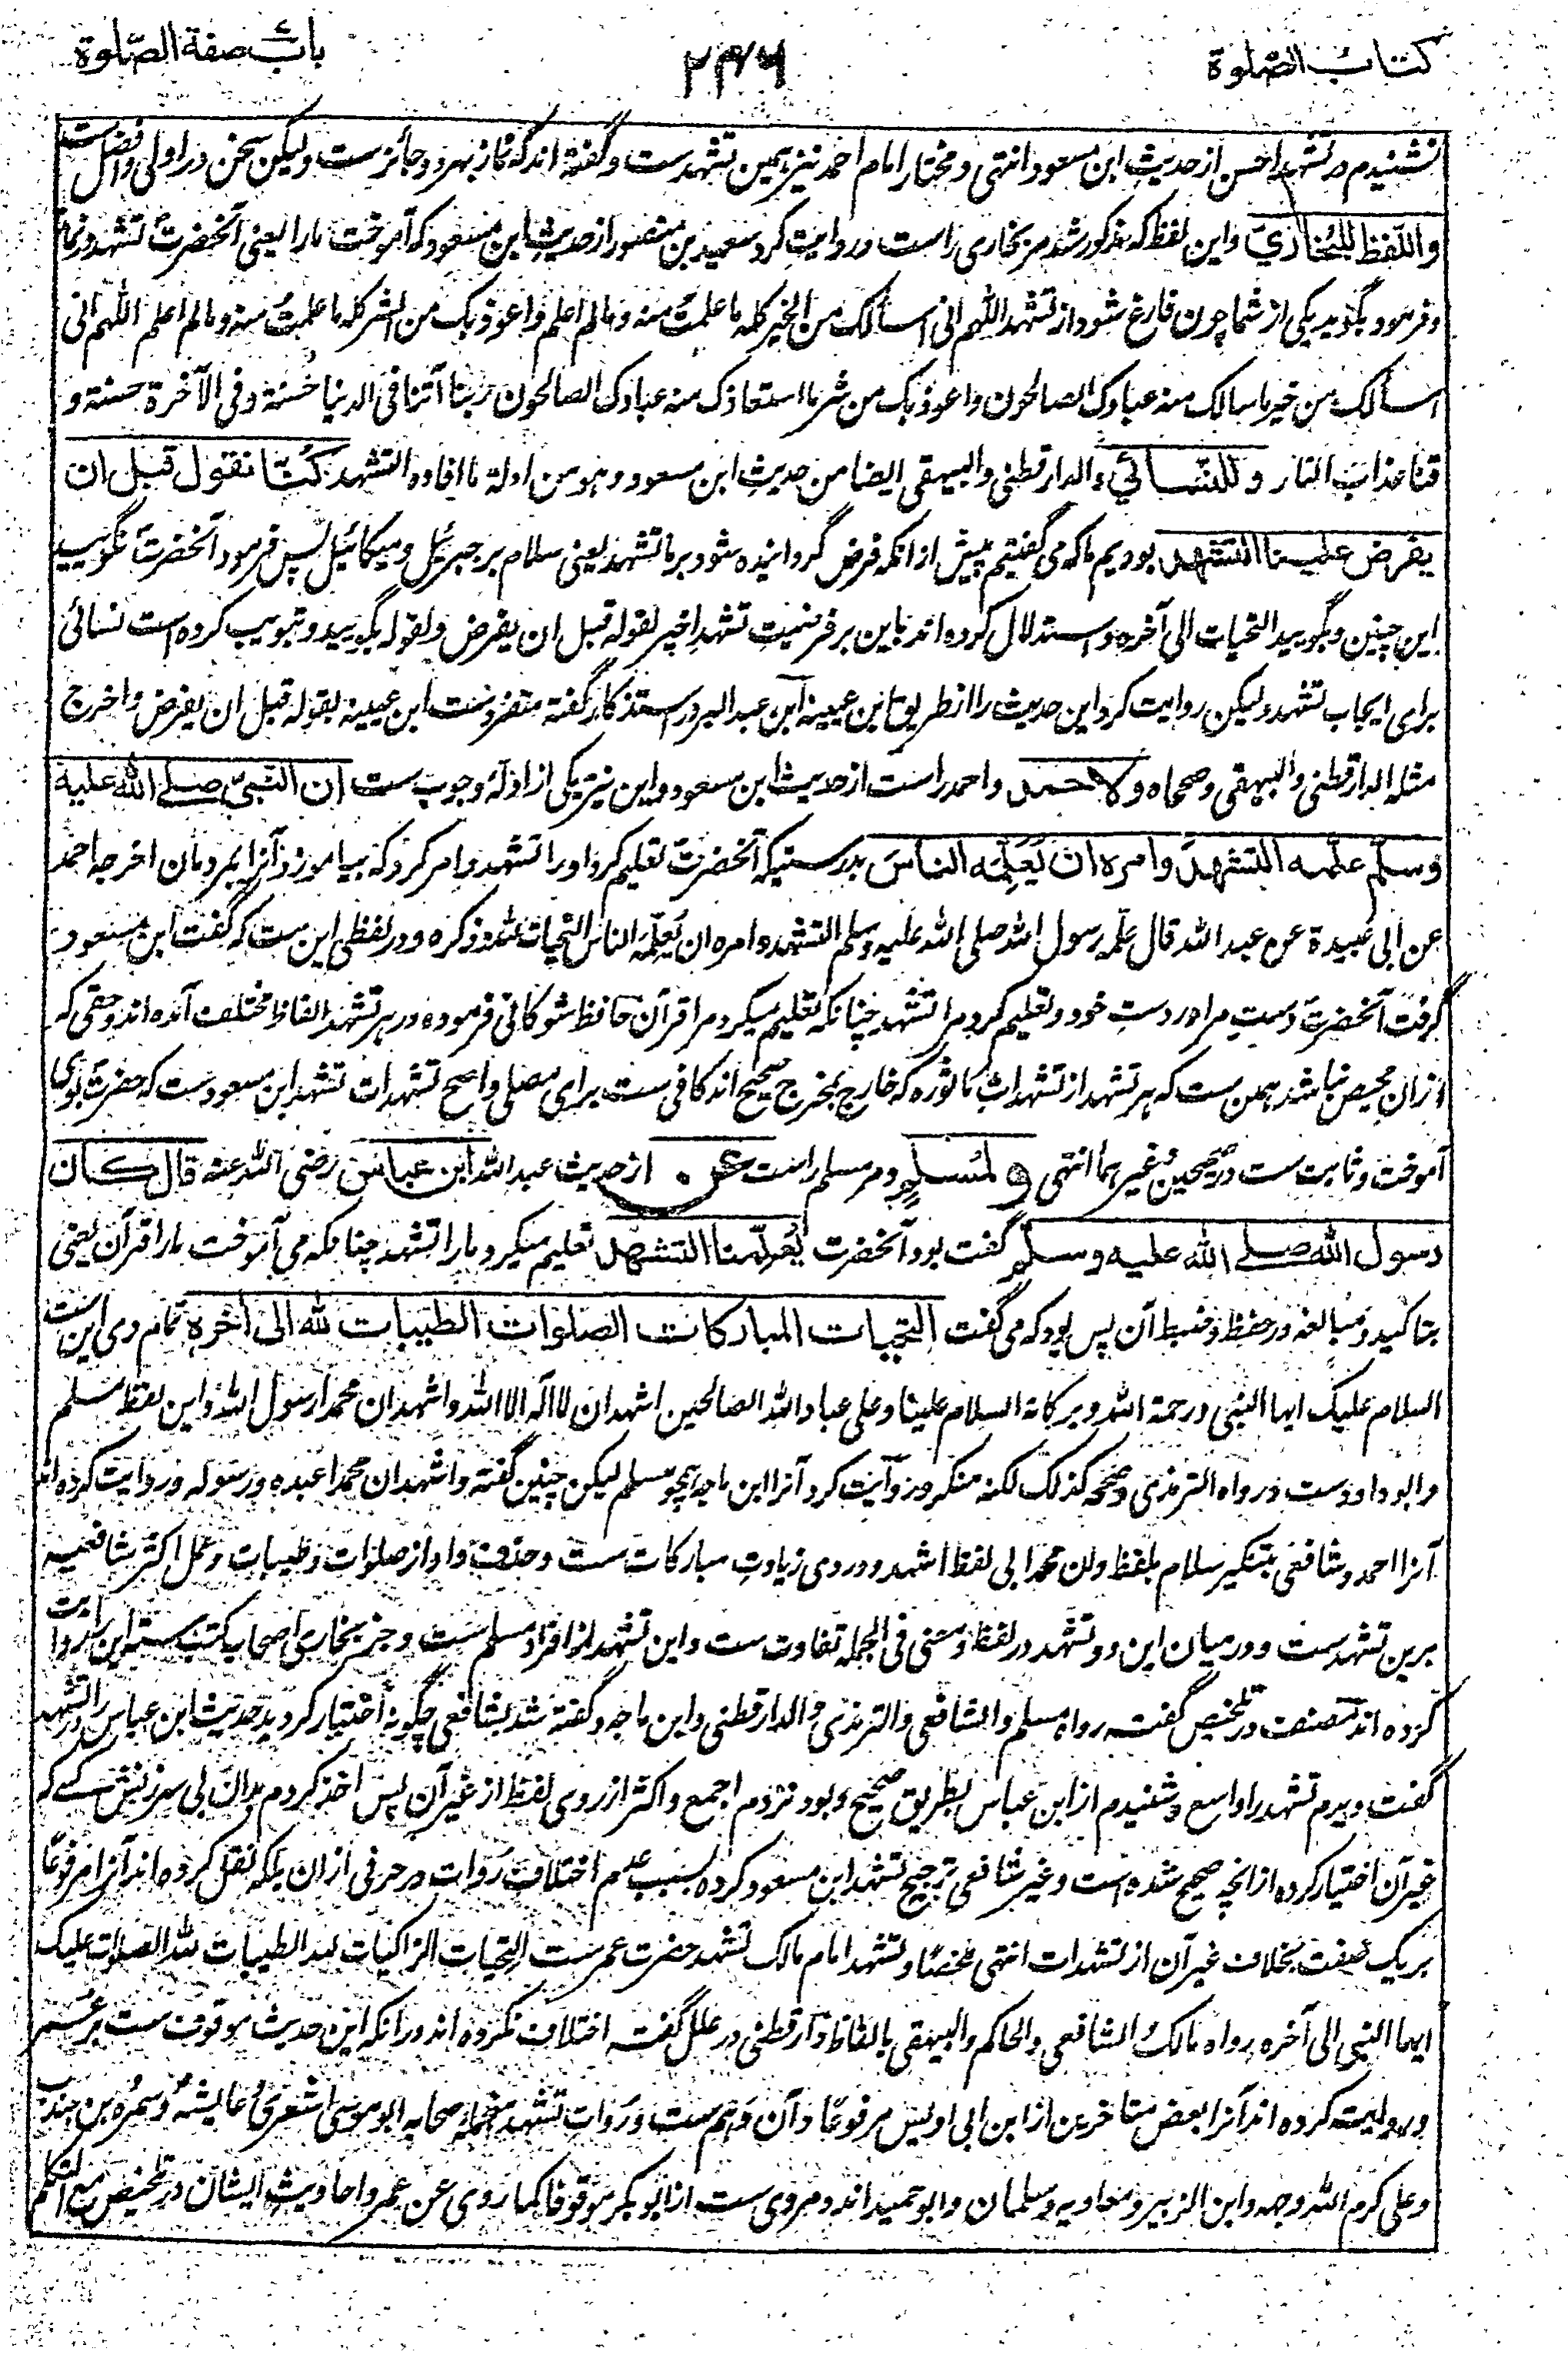 کتاب الصّلوة
۲۴۶
باب صفة الصّلوة
نشنیدم در تشهد احسن از حدیث ابن مسعود انتهی و مختار امام احمد نیز همین تشهدست و گفته اند که نماز بهر دو جائزست ولیکن سخن در اولی و افضل ست
واللّفظ للبُخاریّ واین لفظ که مذکور شد مر بخاری راست و روایت کرد سعید بن منصور از حدیث ابن مسعود که آموخت مارا یعنی آنحضرتؐ تشهد در نماز
و فرمود بگوید یکی از شما چون فارغ شود از تشهد اللهم انی اسألک من الخیر کله ما علمت منه و مالم اعلم و اعوذ بک من الشر کله ما علمت منه و مالم اعلم اللهم انی
اسألک من خیر ما سالک منه عبادک الصالحون و اعوذ بک من شر ما استعاذک منه عبادک الصالحون ربنا آتنا فی الدنیا حسنة و فی الآخرة حسنة و
قنا عذاب النار و للنّسائی والدارقطنی والبیهقی ایضا من حدیث ابن مسعود و هو من ادلة ما افاده التشهد کنّا نقول قبل ان
یفرض علینا التشهد بودیم ما که می گفتیم پیش از انکه فرض گردانیده شود بر ما تشهد یعنی سلام بر جبرئیل و میکائیل پس فرمود آنحضرتؐ نگویید
این چنین و بگویید التحیات الی آخره و استدلال کرده اند باین بر فرضیت تشهد اخیر لقوله قبل ان یفرض و لقوله بگویید و تبویب کرده است نسائی
برای ایجاب تشهد ولیکن روایت کرد این حدیث را از طریق ابن عیینه ابن عبد البر در استذکار گفته متفردست ابن عیینه بقوله قبل ان یفرض و اخرج
مثله الدارقطنی والبیهقی وصححاه و لاحمد و احمد راست از حدیث ابن مسعود و این نیز یکی از ادلّهٔ وجوب ست ان النّبیّ صلے الله علیه
وسلم علّمه التشهد وامره ان یُعلّمه الناس بدرستیکه آنحضرتؐ تعلیم کرد او را تشهد و امر کرد که بیاموزد آنرا بمردمان اخرجه احمد
عن ابی عبیدة عن عبد الله قال علّمه رسول الله صلی الله علیه وسلم التشهد و امره ان یُعلّمه الناس التحیات لله و ذکره و در لفظی این ست که گفت ابن مسعود
گرفت آنحضرتؐ دست مرا در دست خود و تعلیم کرد مرا تشهد چنانکه تعلیم میکرد مرا قرآن حافظ شوکانی فرموده در هر تشهد الفاظ مختلف آمده اند و حقی که
ازان محیص نباشد همین ست که هر تشهد از تشهدات ماثوره که خارج بمخرج صحیح اند کافی ست برای مصلی و اصح تشهدات تشهد ابن مسعودست که حضرت بوی
آموخت و ثابت ست در صحیحین و غیر هما انتهی ولمُسلم و مر مسلم راست عن از حدیث عبد الله ابن عباس رضی الله عنه قال کان
رسول الله صلے الله علیه وسلم گفت بود آنحضرت یُعلّمنا التشهد تعلیم میکرد مارا تشهد چنانکه می آموخت مارا قرآن یعنی
بتاکید و مبالغه در حفظ و ضبط آن پس بود که می گفت التحیات المبارکات الصلوات الطیبات لله الی اٰخره تمام وی این ست
السلام علیک ایها النبی و رحمة الله و برکاته السلام علینا و علی عباد الله الصالحین اشهد ان لا اله الا الله و اشهد ان محمدا رسول الله و این لفظ مسلم
و ابو داودست و رواه الترمذی و صححه کذلک لکنه منکر و روایت کرد آنرا ابن ماجه همچو مسلم لیکن چنین گفته و اشهد ان محمدا عبده و رسوله و روایت کرده اند
آنرا احمد و شافعی بتنکیر سلام بلفظ و ان محمدا بی لفظ اشهد و در وی زیادت مبارکات ست و حذف واو از صلوات و طیبات و عمل اکثر شافعیه
برین تشهدست و در میان این دو تشهد در لفظ و معنی فی الجمله تفاوت ست و این تشهد از افراد مسلم ست و جز بخاری اصحاب کتب سته این را روایت
کرده اند مصنف در تلخیص گفته رواه مسلم والشافعی والترمذی والدارقطنی وابن ماجه و گفته شد بشافعی چگونه اختیار کردید حدیث ابن عباس را در تشهد
گفت دیدم تشهد را واسع و شنیدم از ابن عباس بطریق صحیح و بود نزدم اجمع و اکثر از روی لفظ از غیر آن پس اخذ کردم بدان بی سرزنش کسے که
غیر آن اختیار کرده از انچه صحیح شده است و غیر شافعی ترجیح تشهد ابن مسعود کرده بسبب عدم اختلاف روات در حرفی ازان بلکه نقل کرده اند آنرا مرفوعًا
بر یک صفت بخلاف غیر آن از تشهدات انتهی ملخصًا و تشهد امام مالک تشهد حضرت عمرست التحیات الزاکیات لله الطیبات لله الصلوات علیک
ایها النبی الی آخره رواه مالک والشافعی والحاکم والبیهقی بالفاظ دارقطنی در علل گفته اختلاف نکرده اند در انکه این حدیث موقوف ست بر عمر
و روایت کرده اند آنرا بعض متاخرین از ابن ابی اویس مرفوعًا و آن وهم ست و روات تشهد منجمله صحابه ابو موسی اشعری و عایشه و سمره بن جندب
و علی کرم الله وجهه و ابن الزبیر و معاویه و سلمان و ابو حمید اند و مروی ست از ابو بکر موقوفا کما روی عن عمر و احادیث ایشان در تلخیص مع التکلم